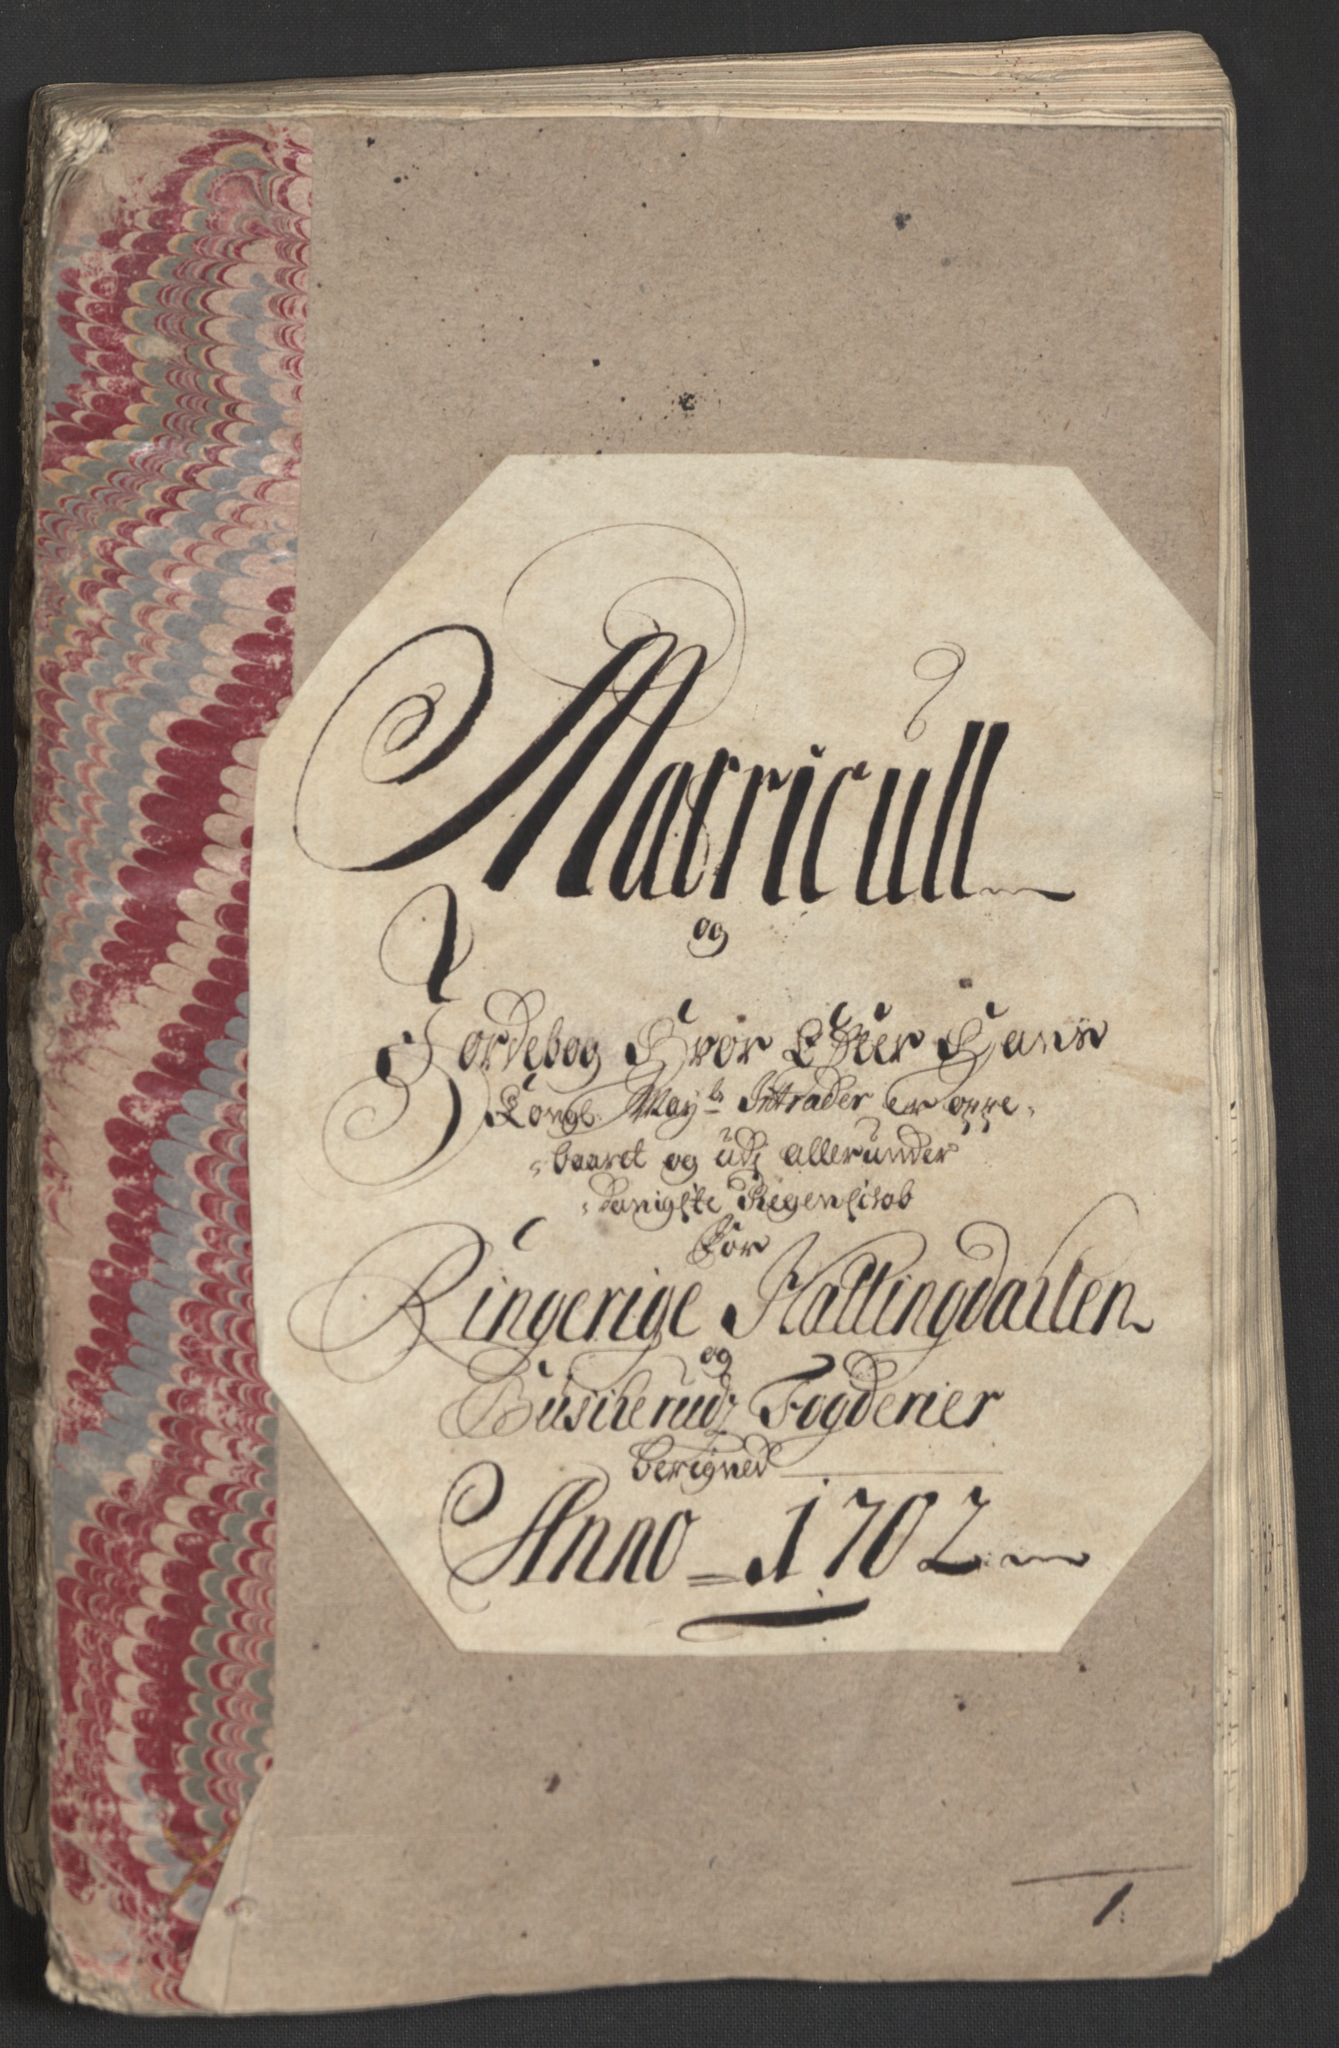 Matricull
og
Jordebog Hvor Effter Hans
Kongl: May:ts Intrader er oppe-
baaret og udj allerunder
danigste Regenschab
For
Ringerige Hallingdahlen
og
Buscherudz Fogderier
berigned
Anno 1702
1